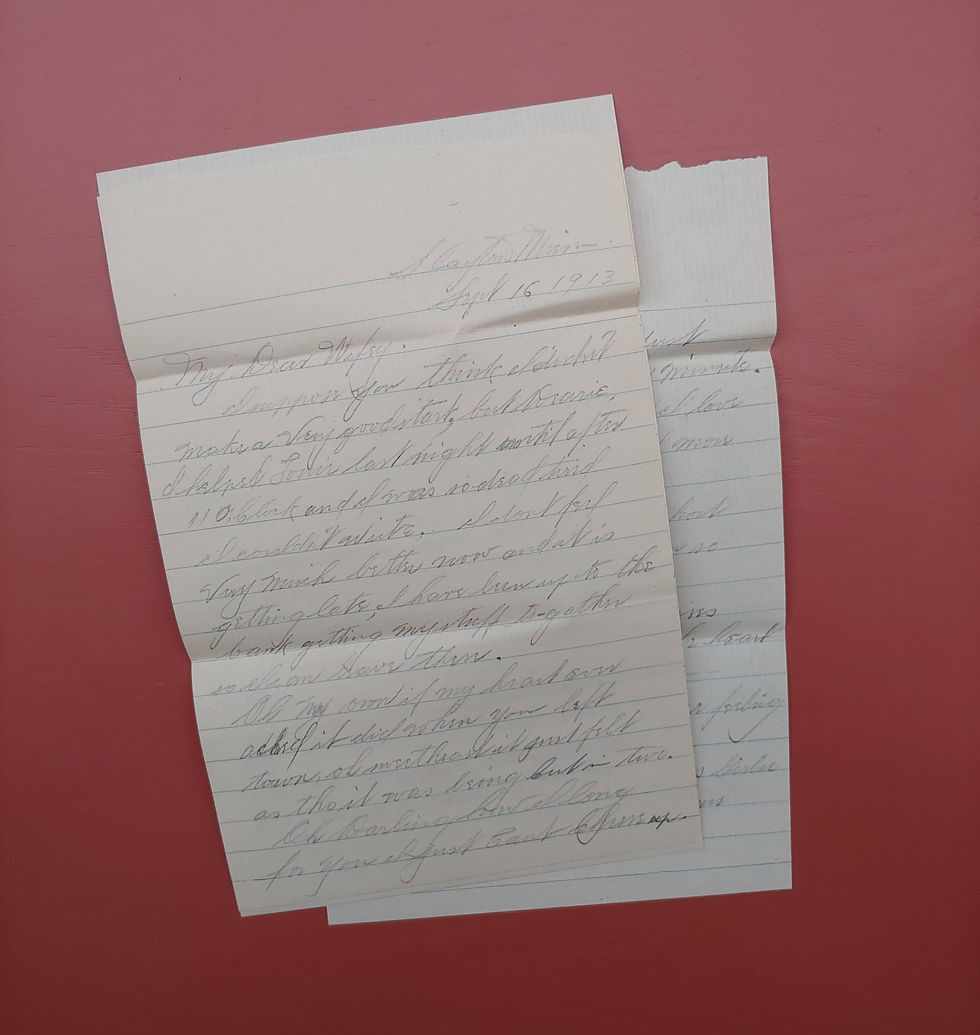 Slayton Minn.
Sept 16 1913
My Dear Wifey.
I suppose you think I didnt
make a Very good start, but Dearie,
I helped Louie last night until after
11 O,Clock and I was so dead tired
I couldn't write. I dont feel
Very much better now and it is
getting late, I have been up to the
bank getting my stuff to-gather
so I can leave then.
Oh my own if my heart ever
ached it did when you left
town, oh sweetheart it just felt
as tho it was being cut in two.
Oh Darling how I long
for you I just Cant Cheer up.
just
minute.
I love
more
so
heart
feeling